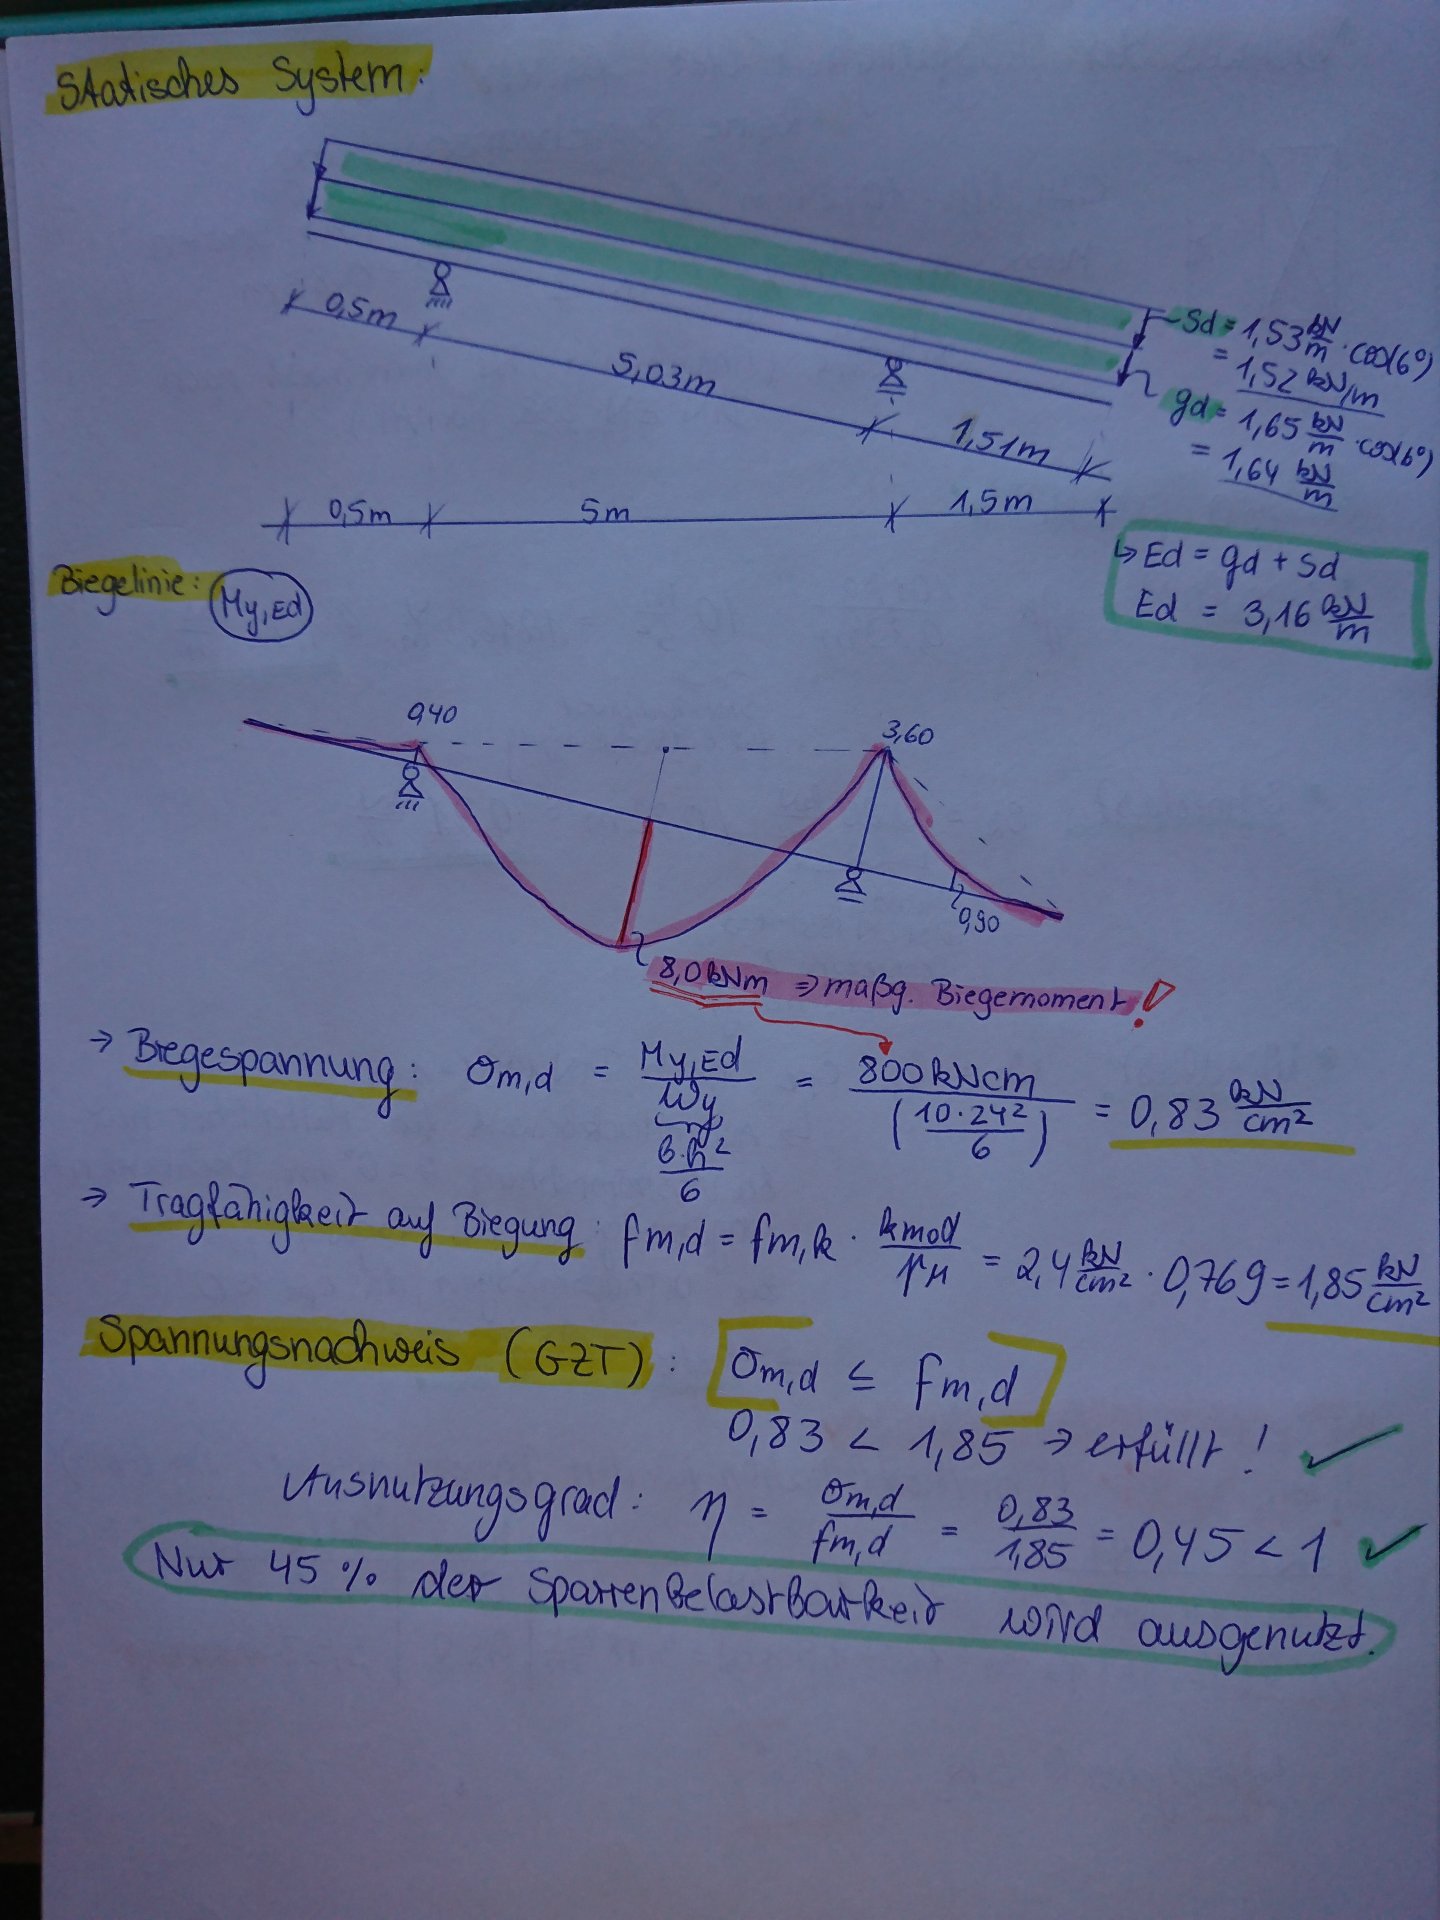 Statisches System:
0,5m
5,03m
1,51m
0,5m
5m
1,5m
Sd = 1,53 kN/m · cos(6°)
= 1,52 kN/m
gd = 1,65 kN/m · cos(6°)
= 1,64 kN/m
↳ Ed = gd + Sd
Ed = 3,16 kN/m
Biegelinie: My,Ed
0,40
3,60
0,90
8,0 kNm ⇒ maßg. Biegemoment!
→ Biegespannung: σm,d = My,Ed / Wy = 800 kNcm / (10·24² / 6) = 0,83 kN/cm²
b·h² / 6
→ Tragfähigkeit auf Biegung: fm,d = fm,k · kmod / γM = 2,4 kN/cm² · 0,769 = 1,85 kN/cm²
Spannungsnachweis (GZT): σm,d ≤ fm,d
0,83 < 1,85 → erfüllt! ✓
Ausnutzungsgrad: η = σm,d / fm,d = 0,83 / 1,85 = 0,45 < 1 ✓
Nur 45 % der Sparrenbelastbarkeit wird ausgenutzt.